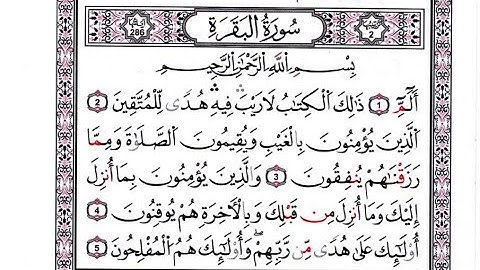 سُورَةُ البَقَرَةِ
2
286
بِسْمِ اللَّهِ الرَّحْمَٰنِ الرَّحِيمِ
الٓمٓ 1 ذَٰلِكَ ٱلْكِتَٰبُ لَا رَيْبَ فِيهِ هُدًى لِّلْمُتَّقِينَ 2
ٱلَّذِينَ يُؤْمِنُونَ بِالْغَيْبِ وَيُقِيمُونَ ٱلصَّلَوٰةَ وَمِمَّا
رَزَقْنَٰهُمْ يُنفِقُونَ 3 وَالَّذِينَ يُؤْمِنُونَ بِمَا أُنزِلَ
إِلَيْكَ وَمَا أُنزِلَ مِن قَبْلِكَ وَبِالْآخِرَةِ هُمْ يُوقِنُونَ 4
أُولَٰئِكَ عَلَىٰ هُدًى مِّن رَّبِّهِمْ ۖ وَأُولَٰئِكَ هُمُ الْمُفْلِحُونَ 5